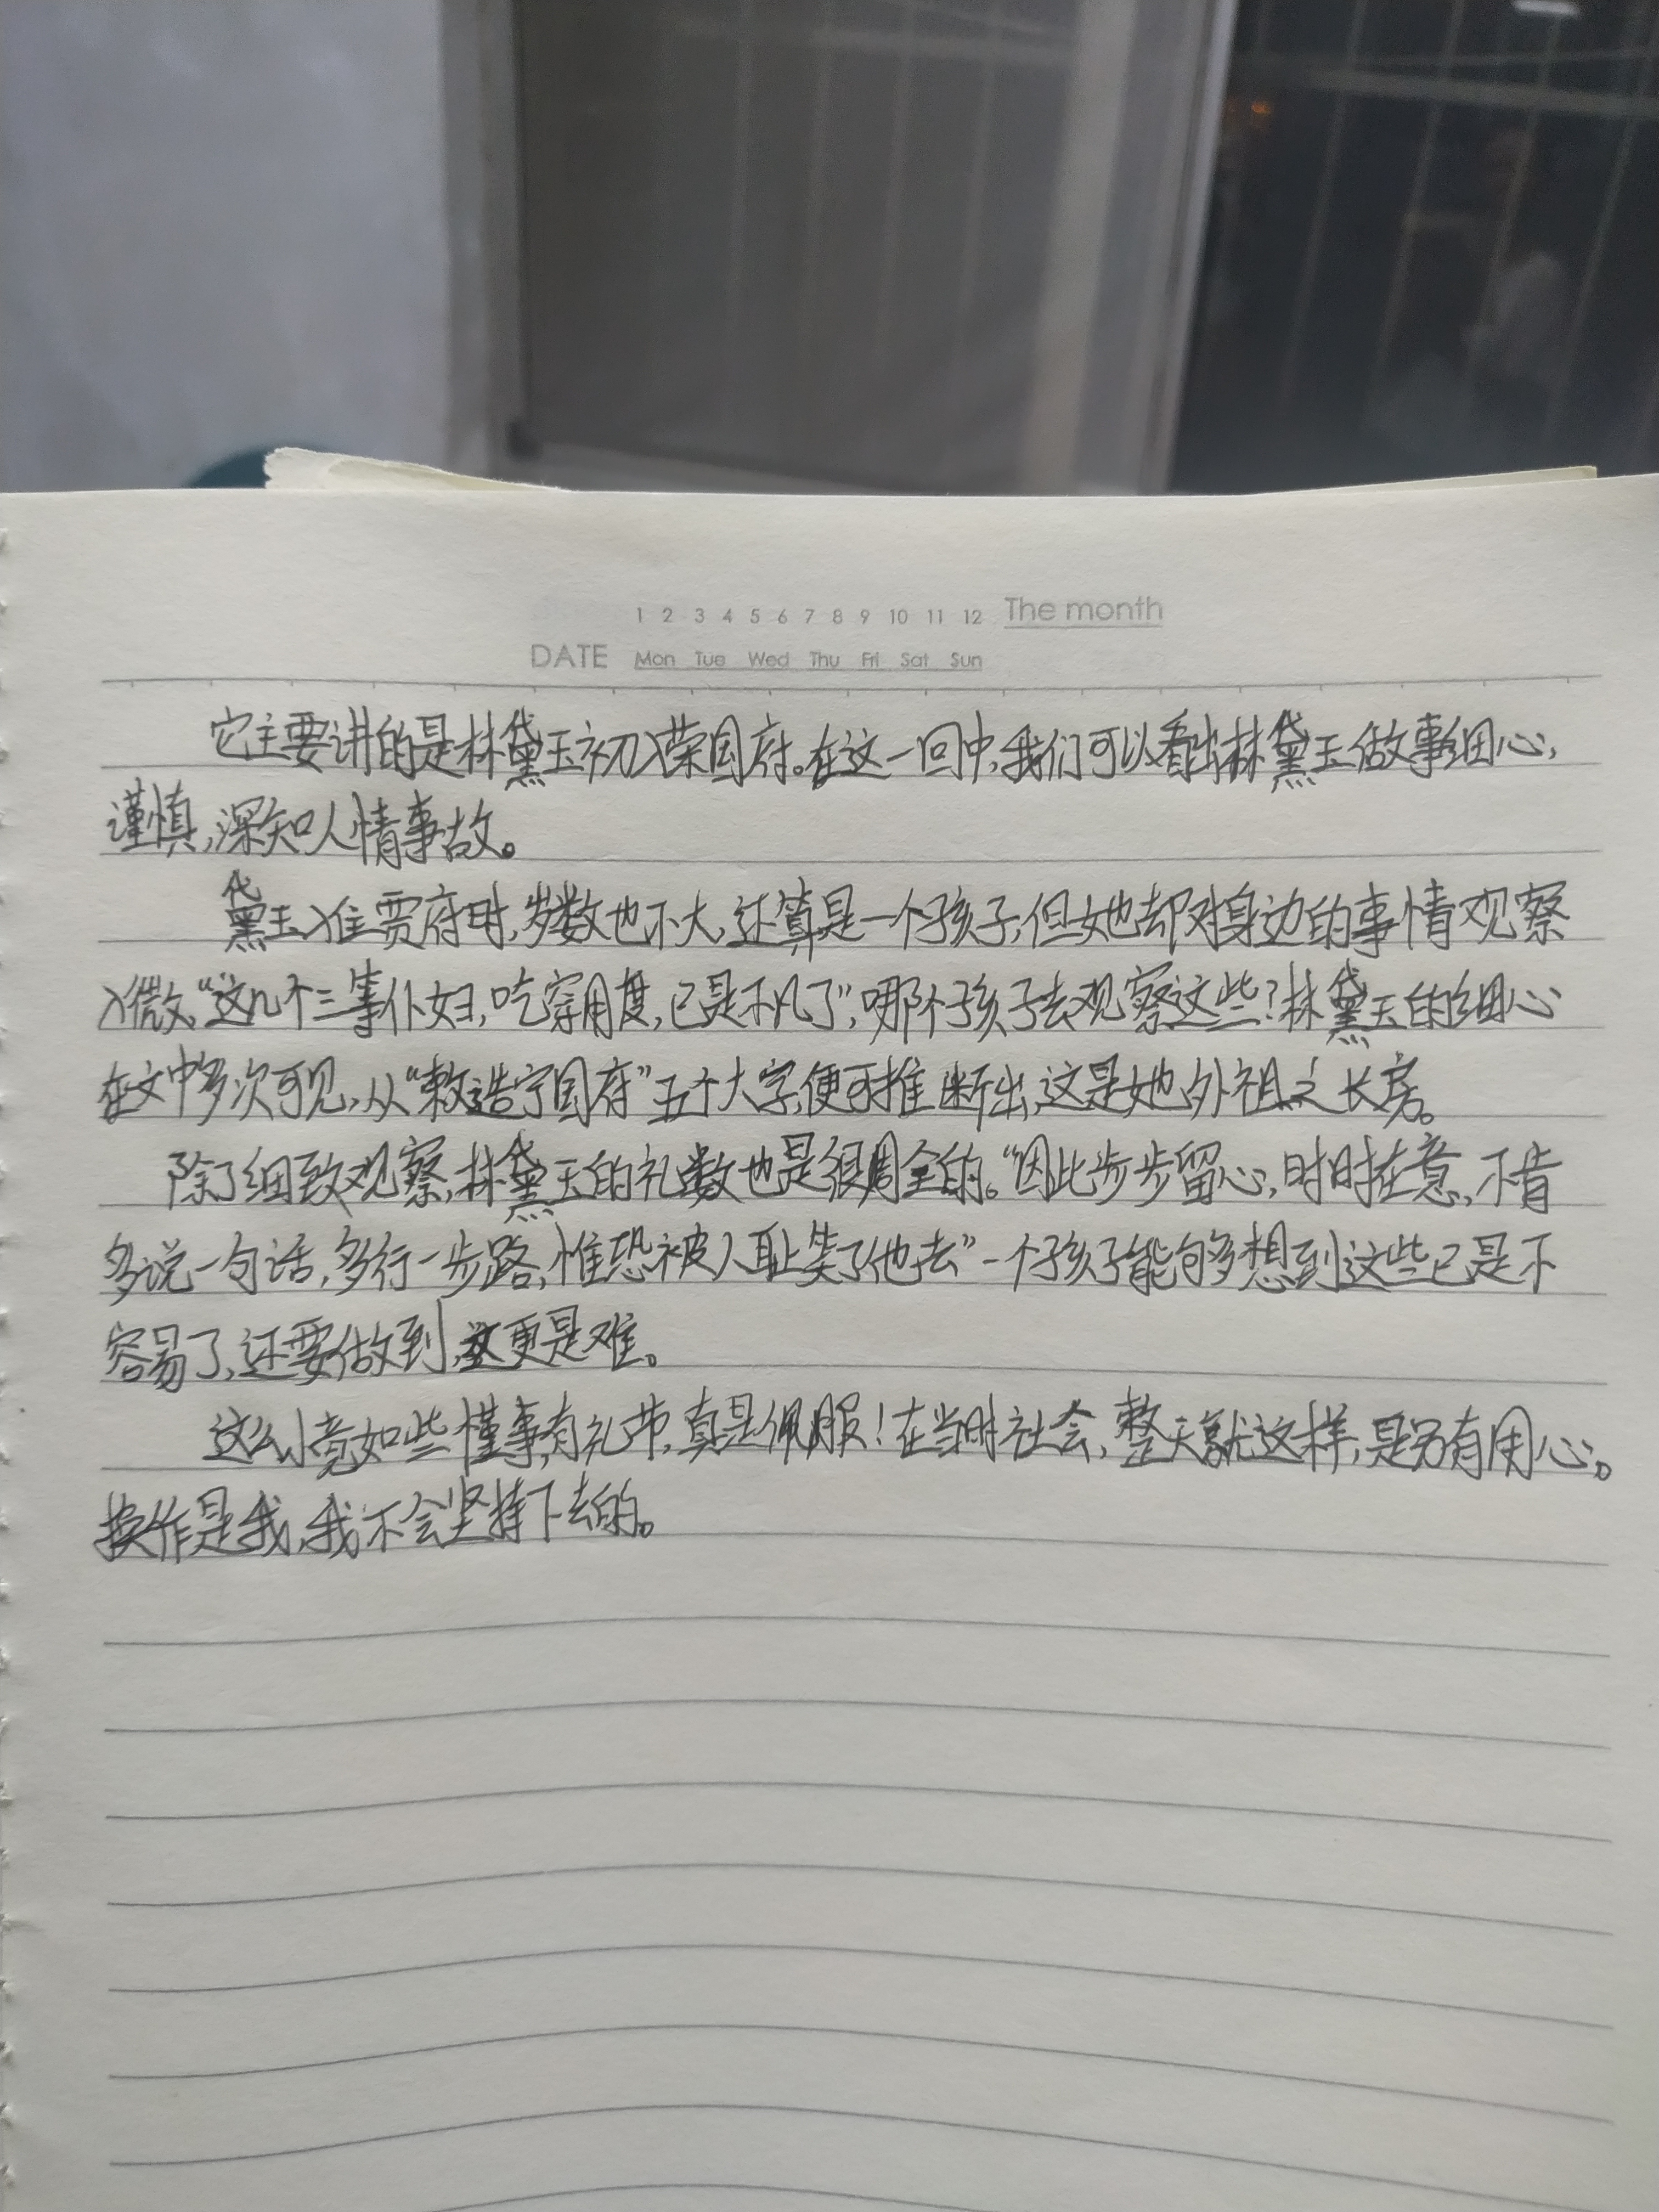 1 2 3 4 5 6 7 8 9 10 11 12 The month
DATE Mon Tue Wed Thu Fri Sat Sun
它主要讲的是林黛玉初入荣国府。在这一回中,我们可以看出林黛玉做事细心,
谨慎,深知人情事故。
黛玉入住贾府时,岁数也不大,还算是一个孩子,但她却对身边的事情观察
入微。“这几个三等仆妇,吃穿用度,已是不凡了”,哪个孩子去观察这些?林黛玉的细心
在文中多次可见,从“敕造宁国府”五个大字,便可推断出,这是她外祖之长房。
除了细致观察,林黛玉的礼数也是很周全的。“因此步步留心,时时在意,不肯
多说一句话,多行一步路,惟恐被人耻笑了他去”一个孩子能够多想到这些已是不
容易了,还要做到,这更是难。
这么小竟如些懂事,有礼节,真是佩服!在当时社会,整天就这样,是另有用心。
换作是我,我不会坚持下去的。